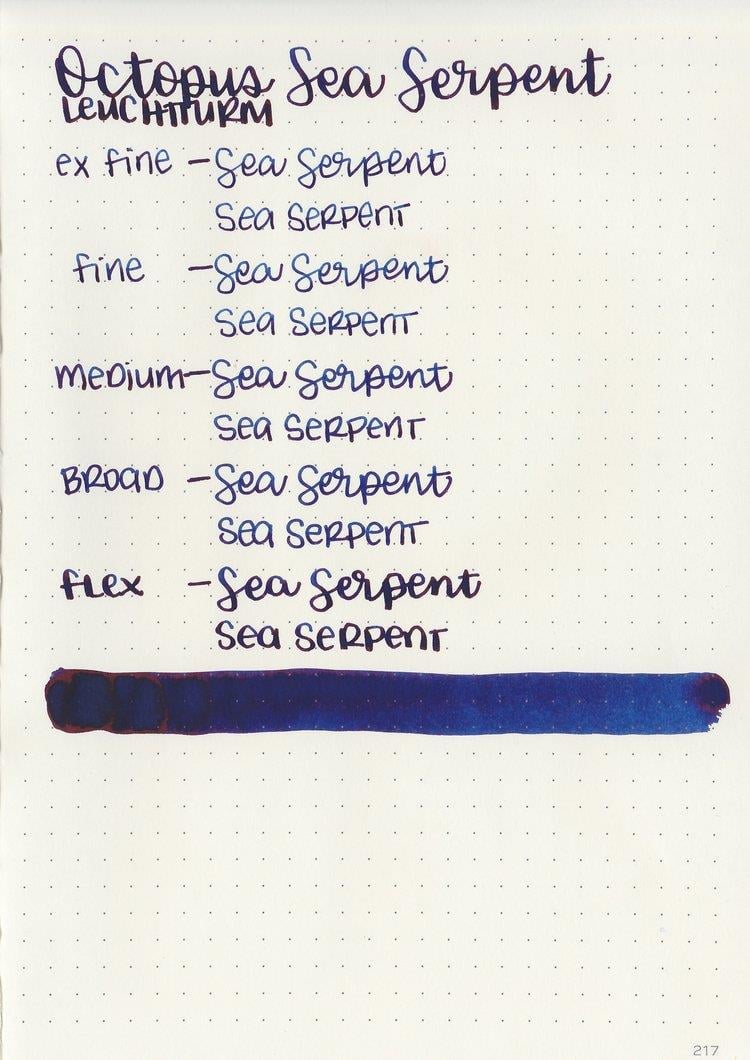 Octopus Sea Serpent
LEUCHTTURM
ex fine - Sea Serpent
Sea Serpent
fine - Sea Serpent
Sea Serpent
medium - Sea Serpent
Sea Serpent
BROAD - Sea Serpent
Sea Serpent
flex - Sea Serpent
Sea Serpent
217